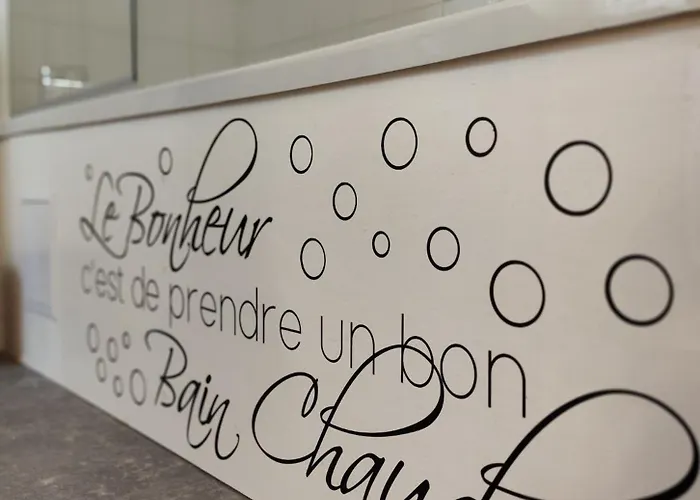 Le Bonheur
c'est de prendre un bon
Bain Chaud